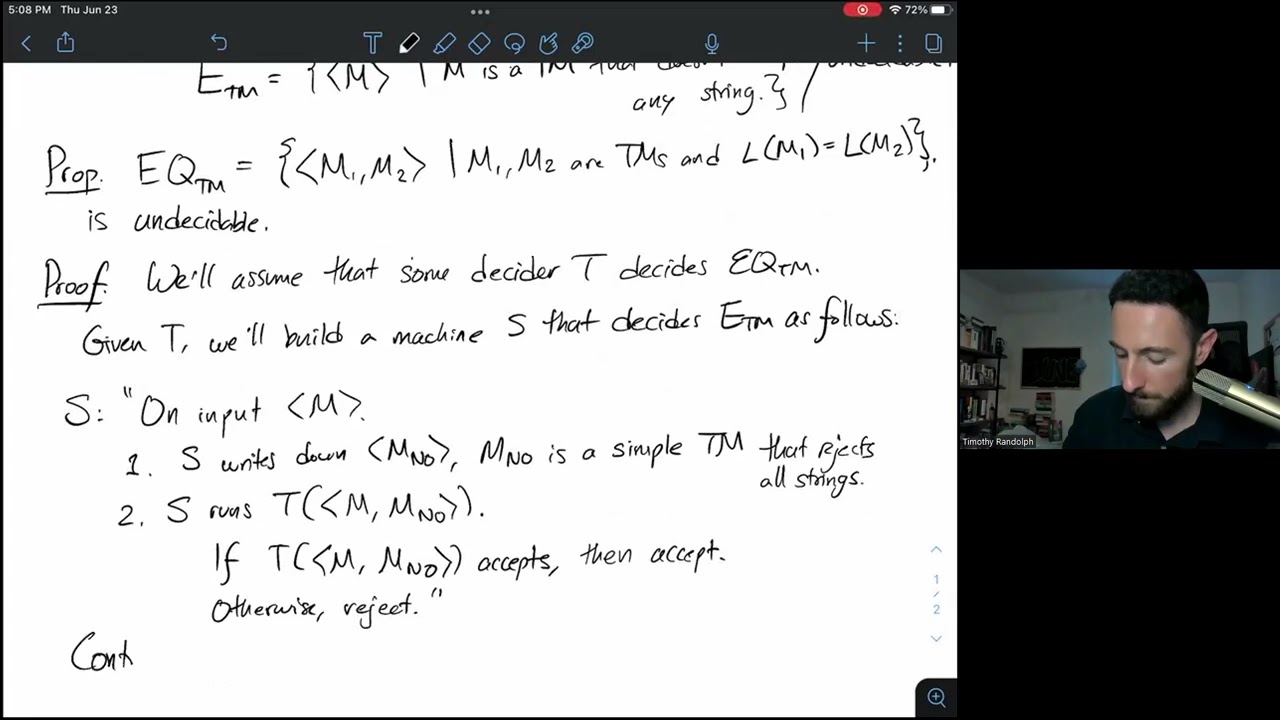 5:08 PM Thu Jun 23
72%
E_TM = {<M> | M is a TM that doesn't
any string.}
Prop. EQ_TM = {<M₁, M₂> | M₁, M₂ are TMs and L(M₁) = L(M₂)}.
is undecidable.
Proof. We'll assume that some decider T decides EQ_TM.
Given T, we'll build a machine S that decides E_TM as follows:
S: "On input <M>.
1. S writes down <M_NO>, M_NO is a simple TM that rejects
all strings.
2. S runs T(<M, M_NO>).
If T(<M, M_NO>) accepts, then accept.
Otherwise, reject."
Cont
1
/
2
Timothy Randolph